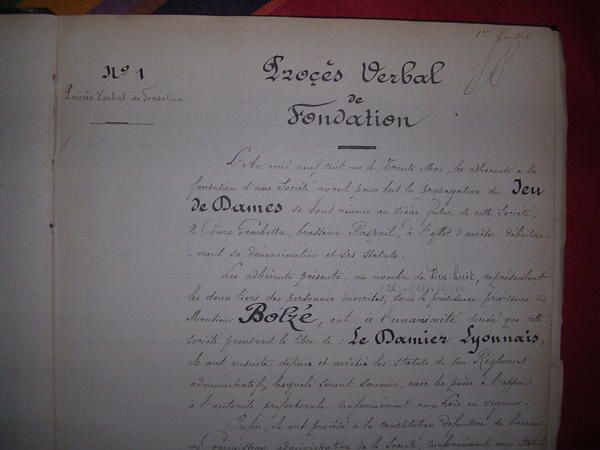 1er Feuillet
Nº 1
Procès Verbal de Fondation
Procès Verbal
de
Fondation
L'An mil neuf cent un le Trente Mai, les adhérents à la
fondation d'une Société ayant pour but la propagation du Jeu
de Dames se sont réunis au siège futur de cette Société,
2 Cours Gambetta, brasserie Raspail, à l'effet d'arrêter définitive-
ment sa dénomination et ses statuts.
Les adhérents présents, au nombre de Dix-huit, représentant
les deux tiers des personnes inscrites, sous la présidence provisoire de
Monsieur Bolzé, ont à l'unanimité décidé que cette
société prendrait le titre de : Le Damier Lyonnais,
ils ont ensuite défini et arrêté les statuts de son Règlement
administratif, lesquels seront soumis, avec les pièces à l'appui
à l'autorité préfectorale conformément aux lois en vigueur.
Enfin, ils ont procédé à la constitution définitive du bureau
ou Commission administrative de la Société conformément aux statuts